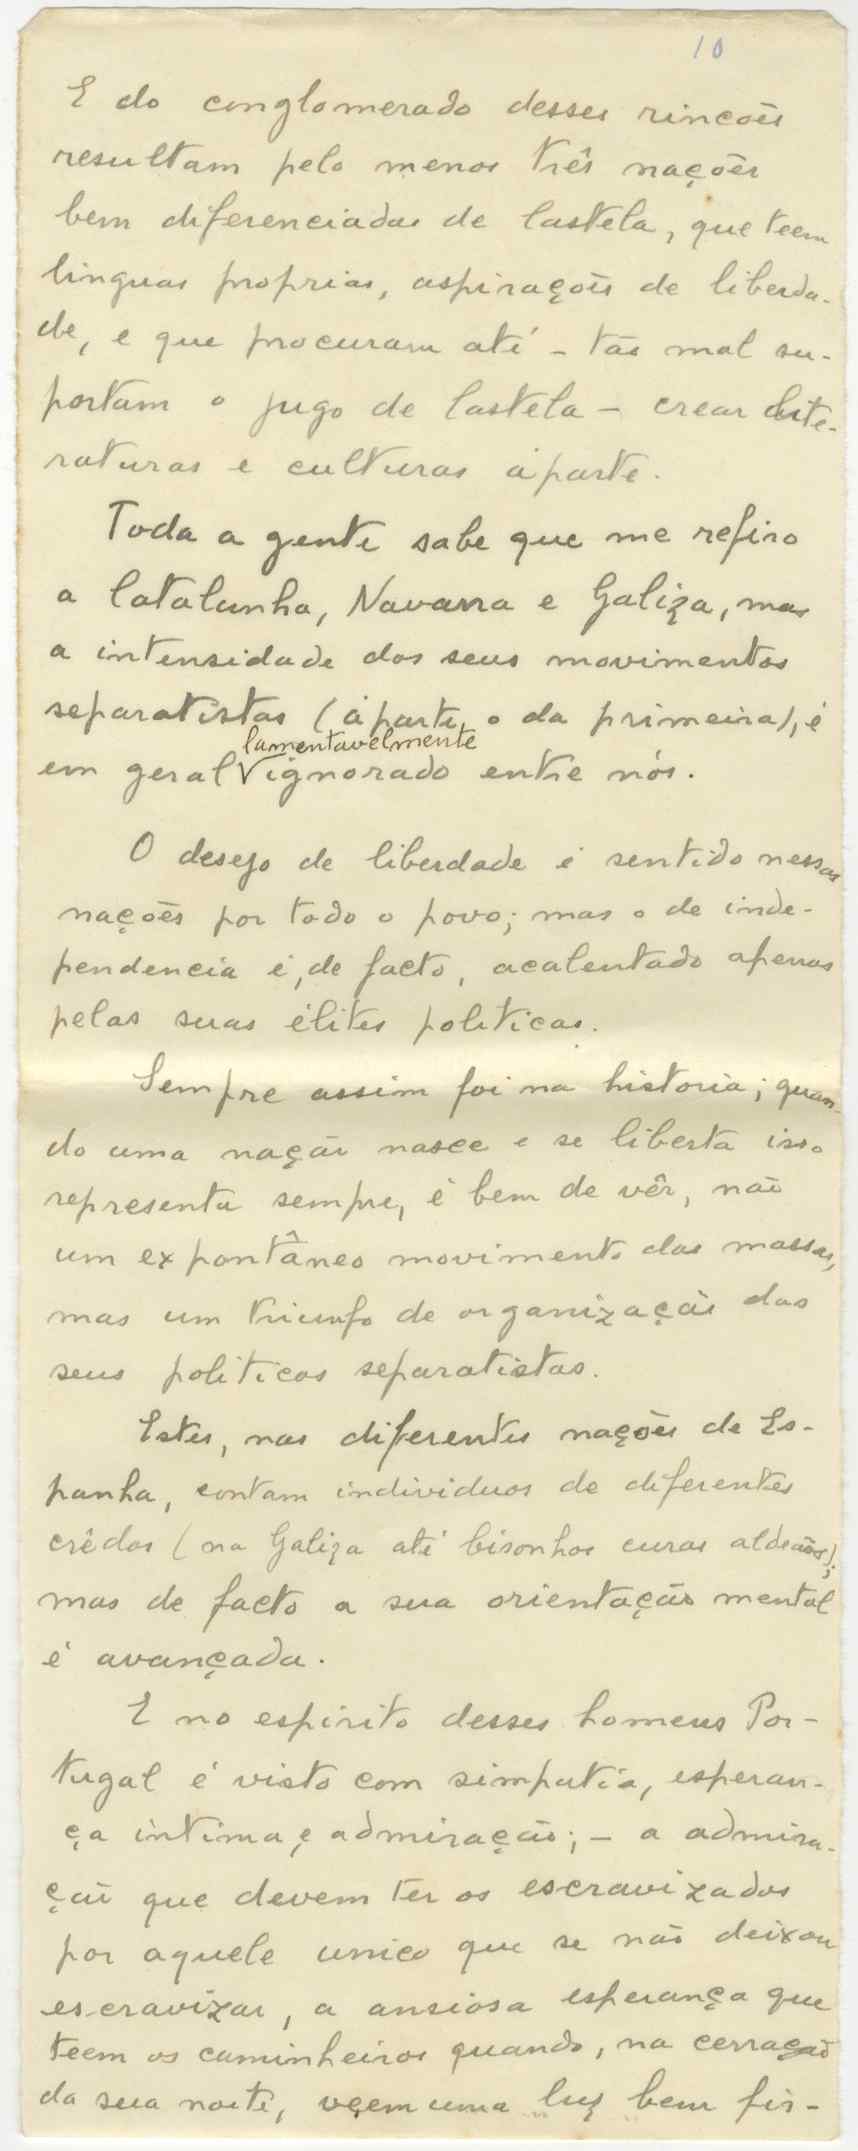 10
E do conglomerado desses rincões
resultam pelo menos três nações
bem diferenciadas de Castela, que teem
linguas proprias, aspirações de liberda-
de, e que procuram até - tão mal su-
portam o jugo de Castela - crear lite-
raturas e culturas áparte.
Toda a gente sabe que me refiro
a Catalunha, Navarra e Galiza, mas
a intensidade dos seus movimentos
separatistas (áparte o da primeira), é
lamentavelmente
em geral V ignorado entre nós.
O desejo de liberdade é sentido nessas
nações por todo o povo; mas o de inde-
pendencia é, de facto, acalentado apenas
pelas suas élites politicas.
Sempre assim foi na historia; quan-
do uma nação nasce e se liberta isso
representa sempre, é bem de vêr, não
um expontâneo movimento das massas,
mas um triunfo de organização dos
seus politicos separatistas.
Estes, nas diferentes nações de Es-
panha, contam individuos de diferentes
crêdos (na Galiza até bisonhos curas aldeãos);
mas de facto a sua orientação mental
é avançada.
E no espirito desses homens Por-
tugal é visto com simpatia, esperan-
ça intima, e admiração; - a admira-
ção que devem ter os escravizados
por aquele unico que se não deixou
escravizar, a ansiosa esperança que
teem os caminheiros quando, na cerração
da sua noite, vêem uma luz bem fir-